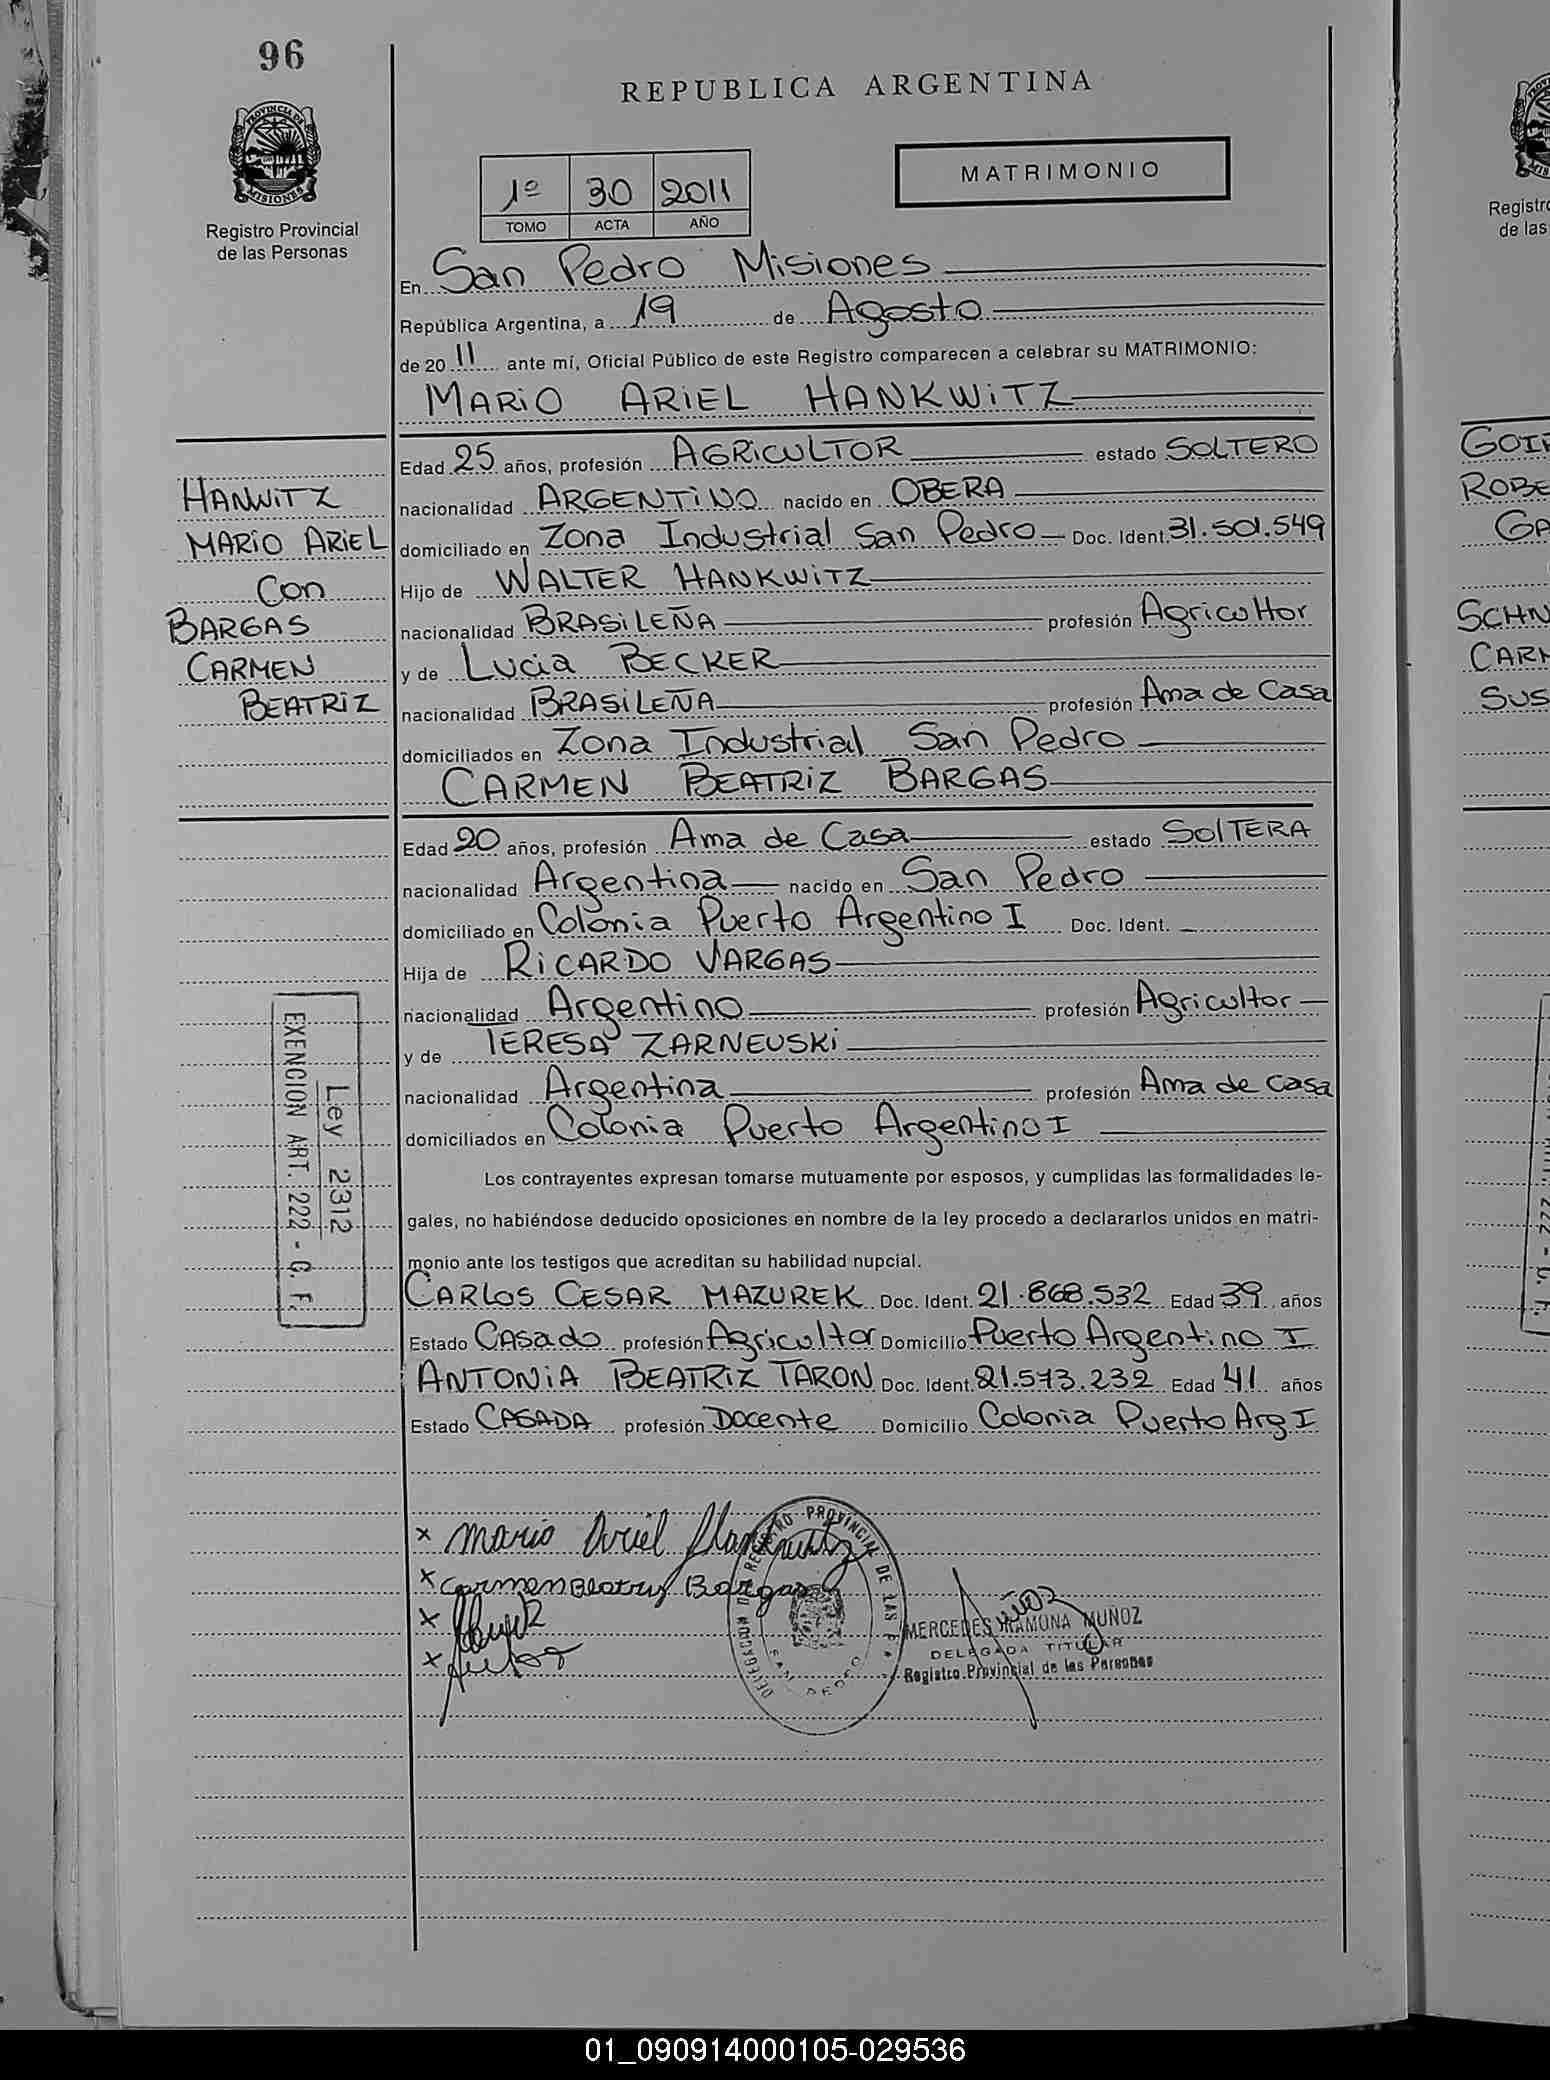 96
REPUBLICA ARGENTINA
PROVINCIA DE
MISIONES
Registro Provincial
de las Personas
MATRIMONIO
1º 30 2011
TOMO ACTA AÑO
En San Pedro Misiones
República Argentina, a 19 de Agosto
de 2011 ante mí, Oficial Público de este Registro comparecen a celebrar su MATRIMONIO:
MARIO ARIEL HANKWITZ
HANWITZ
MARIO ARIEL
Con
BARGAS
CARMEN
BEATRIZ
Edad 25 años, profesión AGRICULTOR estado SOLTERO
nacionalidad ARGENTINO nacido en OBERA
domiciliado en Zona Industrial San Pedro Doc. Ident. 31.501.549
Hijo de WALTER HANKWITZ
nacionalidad BRASILEÑA profesión Agricultor
y de Lucia BECKER
nacionalidad BRASILEÑA profesión Ama de Casa
domiciliados en Zona Industrial San Pedro
CARMEN BEATRIZ BARGAS
Edad 20 años, profesión Ama de Casa estado SolTERA
nacionalidad Argentina nacido en San Pedro
domiciliado en Colonia Puerto Argentino I Doc. Ident.
Hija de RICARDO VARGAS
nacionalidad Argentino profesión Agricultor
y de TERESA ZARNEUSKI
nacionalidad Argentina profesión Ama de casa
domiciliados en Colonia Puerto Argentino I
Ley 2312
EXENCION ART. 222 - C. F.
Los contrayentes expresan tomarse mutuamente por esposos, y cumplidas las formalidades le-
gales, no habiéndose deducido oposiciones en nombre de la ley procedo a declararlos unidos en matri-
monio ante los testigos que acreditan su habilidad nupcial.
CARLOS CESAR MAZUREK Doc. Ident. 21.868.532 Edad 39 años
Estado CASado profesión Agricultor Domicilio Puerto Argentino I
ANTONIA BEATRIZ TARON Doc. Ident. 21.573.232 Edad 41 años
Estado CASADA profesión Docente Domicilio Colonia Puerto Arg I
x Mario Ariel Hankwitz
x Carmen Beatriz Bargas
x
x
DELEGACION DEL REGISTRO PROVINCIAL DE LAS
SAN PEDRO
MERCEDES RAMONA MUÑOZ
DELEGADA TITULAR
Registro Provincial de las Personas
Registro
de las
GOIR
ROBE
GA
SCHN
CARM
SUS
01_090914000105-029536